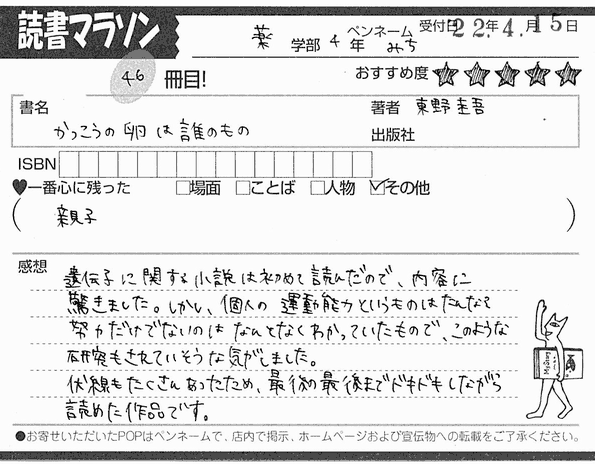 読書マラソン
薬 学部 4 年 ペンネーム みち 受付日 22年 4.月 15日
46 冊目!
おすすめ度 ★★★★★
書名 著者 東野圭吾
かっこうの卵は誰のもの 出版社
ISBN
♥一番心に残った □場面 □ことば □人物 ☑その他
( 親子 )
感想
遺伝子に関する小説は初めて読んだので、内容に
驚きました。しかし、個人の運動能力というものはたんなる
努力だけでないのはなんとなくわかっていたもので、このような
研究もされていそうな気がしました。
伏線もたくさんあったため、最後の最後までドキドキしながら
読めた作品です。
●お寄せいただいたPOPはペンネームで、店内で掲示、ホームページおよび宣伝物への転載をご了承ください。